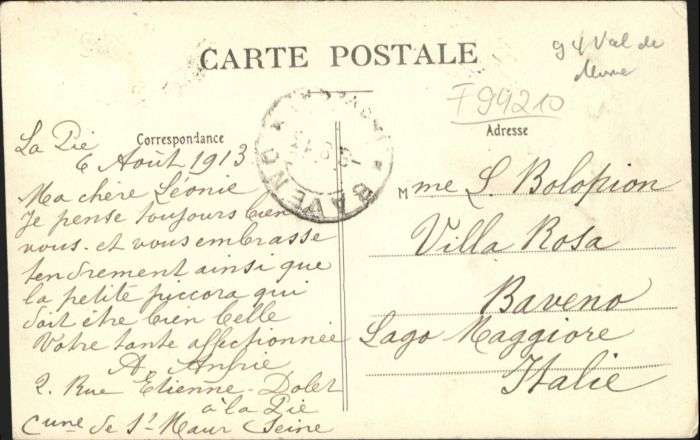 CARTE POSTALE
94 Val de
Marne
F99210
Correspondance
Adresse
La Pie
6 Août 1913
Ma chère Léonie
Je pense toujours bien
vous. et vous embrasse
tendrement ainsi que
la petite piccora qui
doit être bien belle
Votre tante affectionnée
A. Anfrie
2. Rue Etienne-Dolet
à la Pie
Cune de St Maur Seine
BAVENO
Mme L. Bolopion
Villa Rosa
Baveno
Lago Maggiore
Italie